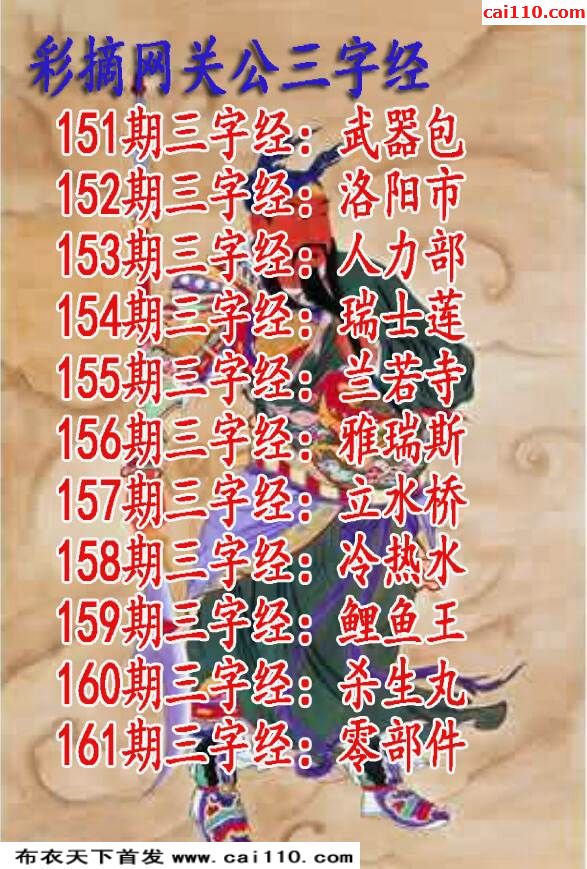 cai110.com
彩摘网关公三字经
151期三字经：武器包
152期三字经：洛阳市
153期三字经：人力部
154期三字经：瑞士莲
155期三字经：兰若寺
156期三字经：雅瑞斯
157期三字经：立水桥
158期三字经：冷热水
159期三字经：鲤鱼王
160期三字经：杀生丸
161期三字经：零部件
布衣天下首发 www.cai110.com